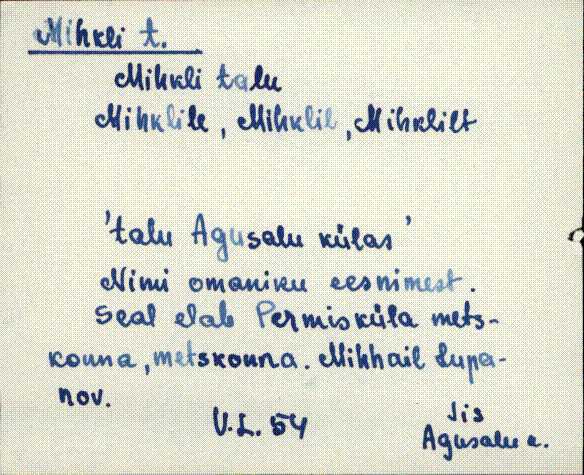 Mihkli t.
Mihkli talu
Mihklile, Mihklil, Mihklilt
'talu Agusalu külas'
Nimi omaniku eesnimest.
Seal elab Permisküla mets-
konna, metskonna. Mihhail Lupa-
nov.
V.L. 54
Jis
Agusalu k.